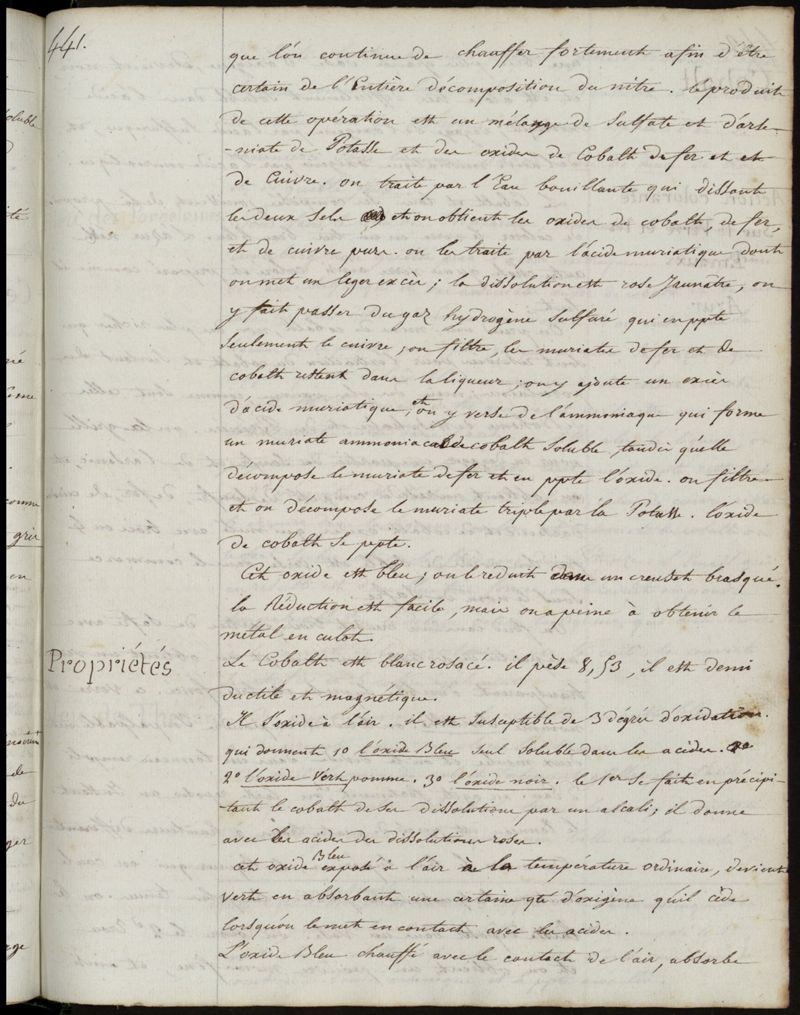 441.
que l'on continue de chauffer fortement afin d'être
certain de l'Entière décomposition du nitre. le produit
de cette opération est un mélange de Sulfate et d'arse-
-niate de Potasse et des oxides de Cobalt de fer et et
de Cuivre. on traite par l'Eau bouillante qui dissout
les deux Sels et on obtient les oxides de cobalt, de fer,
et de cuivre purs. on les traite par l'acide muriatique dont
on met un leger excès; la dissolution est rose Jaunâtre, on
y fait passer du gaz hydrogène Sulfuré qui en ppte
Seulement le cuivre, on filtre, les muriates de fer et de
cobalt restent dans la liqueur; on y ajoute un excès
d'acide muriatique, et on y verse de l'ammoniaque qui forme
un muriate ammoniacal de cobalt Soluble, tandis qu'elle
décompose le muriate de fer et en ppte l'oxide. on filtre
et on décompose le muriate triple par la Potasse. l'oxide
de cobalt Se ppte.
Cet oxide est bleu; on le reduit dans un creuset brasqué.
la Réduction est facile, mais on a peine à obtenir le
métal en culot.
Propriétés
Le Cobalt est blanc rosacé. il pèse 8,53, il est demi
ductile et magnétique.
Il S'oxide à l'air. il est Susceptible de 3 dégrés d'oxidation.
qui donnent 1o l'oxide Bleu Seul Soluble dans les acides.
2o l'oxide Vert pomme. 3o l'oxide noir. le 1er Se fait en précipi-
tant le cobalt de Ses dissolutions par un alcali; il donne
avec les acides des dissolutions roses.
cet oxide Bleu exposé à l'air à la température ordinaire, devient
Vert en absorbant une certaine qté d'oxigène qu'il cède
lorsqu'on le met en contact avec les acides.
L'oxide Bleu chauffé avec le contact de l'air, absorbe